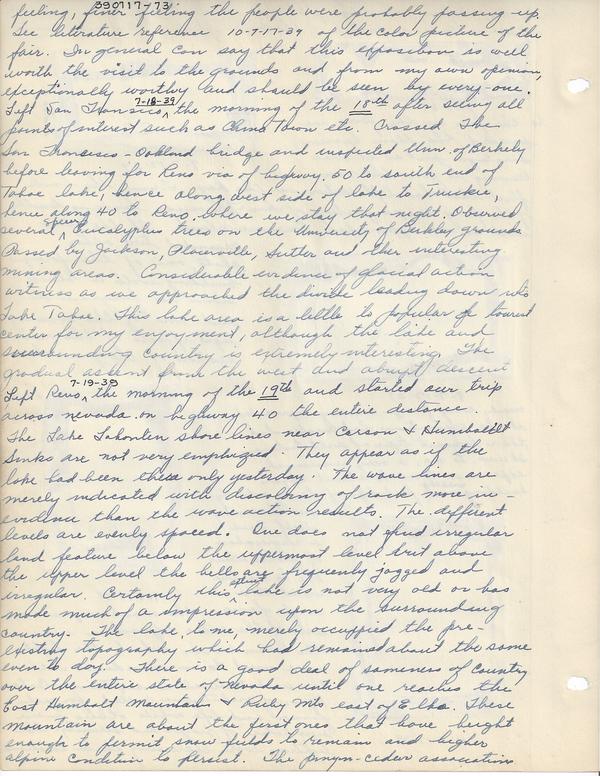 390717-73
feeling, finer feeling the people were probably passing up.
See literature reference 10-7-17-39 of the color picture of the
fair. In general can say that this exposition is well
worth the visit to the grounds and from my own opinion,
exceptionally worthy and should be seen by every-one.
7-18-39
Left San Francisco ^ the morning of the 18th after seeing all
points of interest such as China Town etc. Crossed The
San Francisco-Oakland bridge and inspected Univ. of Berkely
before leaving for Reno via of highway 50 to south end of
Tahoe lake, hence along west side of lake to Truckie,
hence along 40 to Reno, where we stay that night. Observed
several ^ eucalyptus trees on the University of Berkley grounds.
Passed by Jackson, Placerville, Sutter and other interesting
mining areas. Considerable evidence of glacial action
witness as we approached the divide leading down into
Lake Tahoe. This lake area is a little to popular for tourist
center for my enjoyment, although the lake and
surrounding country is extremely interesting. The
gradual ascent from the west and abrupt descent
7-19-39
Left Reno ^ the morning of the 19th and started our trip
across nevada on highway 40 the entire distance.
The Lake Lahonten shore lines near Carson & Humboldt
Sinks are not very emphazied. They appear as if the
lake had been there only yesterday. The wave lines are
merely indicated with discoloring of rock more in-
evidence than the wave action results. The different
levels are evenly spaced. One does not find irregular
land feature below the uppermost level but above
the upper level the hills are frequently jagged and
irregular. Certainly this ^ lake is not very old or has
made much of a impression upon the surrounding
country. The lake, to me, merely occuppied the pre-
existing topography which had remained about the same
even to day. There is a good deal of sameness of country
over the entire state of Nevada until one reaches the
East Humbolt Mountains & Ruby Mts east of Elko. These
mountain are about the first ones that have height
enough to permit snow fields to remain and higher
alpine condition to persist. The pinyn-cedar association